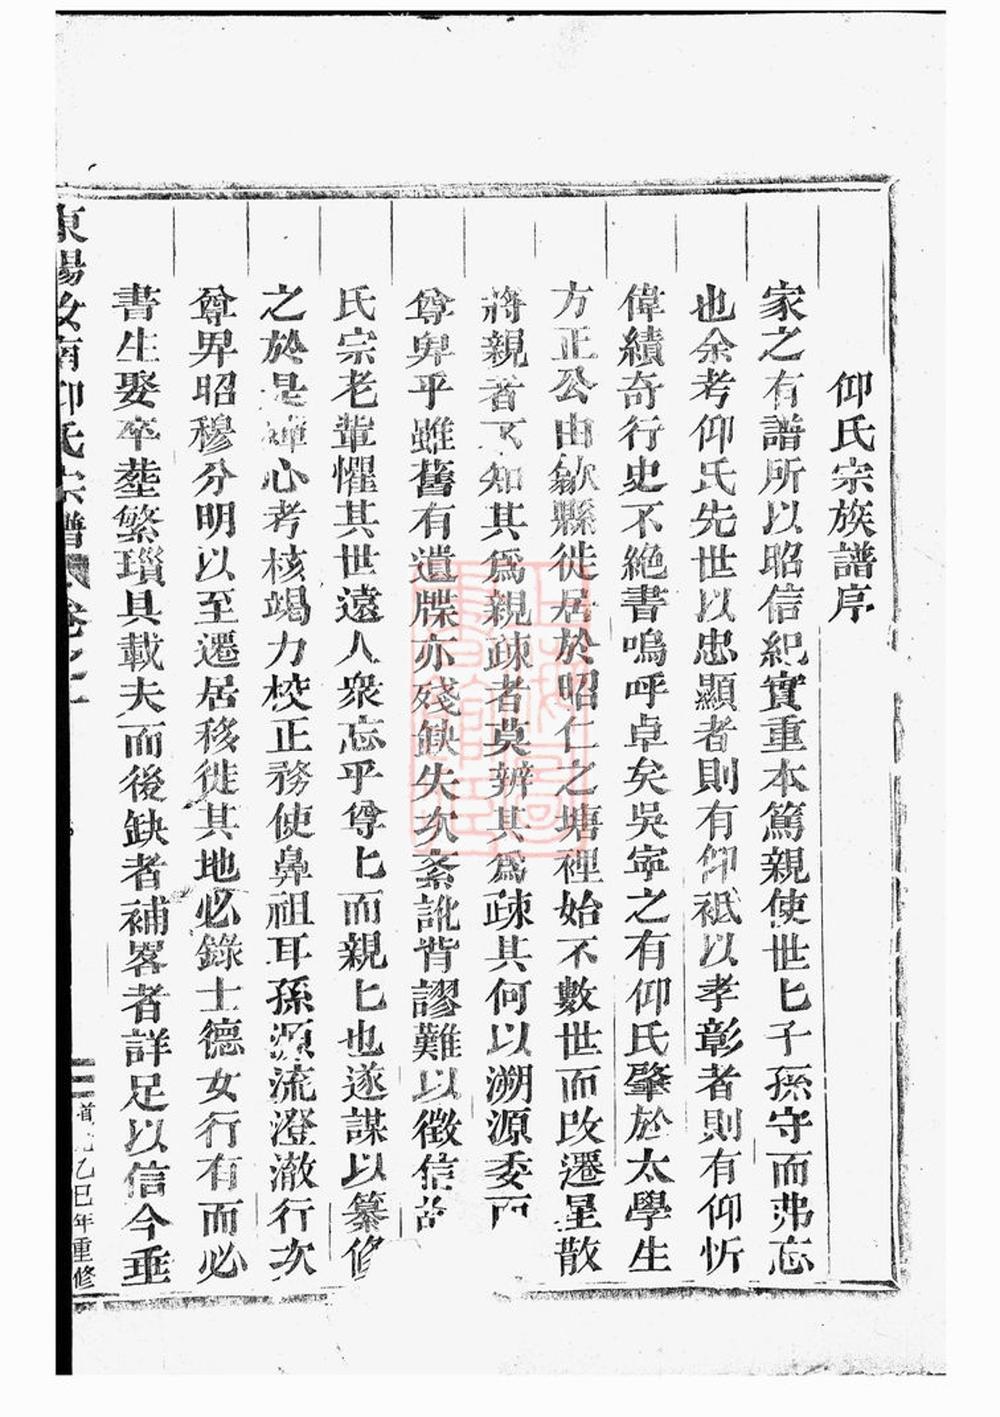 仰氏宗族譜序
家之有譜所以昭信紀實重本篤親使世匕子孫守而弗忘
也余考仰氏先世以忠顯者則有仰祗以孝彰者則有仰忻
偉績奇行史不絕書嗚呼卓矣吳寧之有仰氏肇於太學生
方正公由歙縣徙居於昭仁之塘裡始不數世而改遷星散
將親者不知其為親疎者莫辨其為疎其何以溯源委而
尊卑乎雖舊有遺牒亦殘缺失次紊訛背謬難以徵信
氏宗老輩懼其世遠人衆忘乎尊匕而親匕也遂謀以纂修
之於是殫心考核竭力校正務使鼻祖耳孫源流澄澈行次
尊畀昭穆分明以至遷居移徙其地必錄士德女行有而必
書生娶卒塟繁瑣具載夫而後缺者補畧者詳足以信今垂
東陽汝南仰氏宗譜 卷之一 乙巳年重修